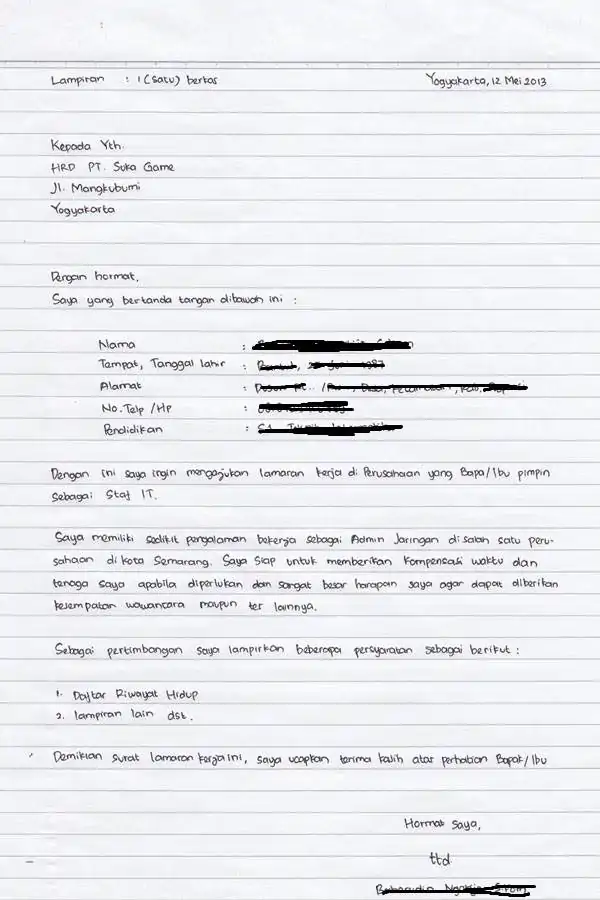 Lampiran : 1 (satu) berkas Yogyakarta, 12 Mei 2013
Kepada Yth.
HRD PT. Suka Game
Jl. Mangkubumi
Yogyakarta
Dengan hormat,
Saya yang bertanda tangan dibawah ini :
Nama :
Tempat, Tanggal lahir :
Alamat :
No. Telp / Hp :
Pendidikan :
Dengan ini saya ingin mengajukan lamaran kerja di Perusahaan yang Bapa/Ibu pimpin
Sebagai Staf IT.
Saya memiliki sedikit pengalaman bekerja sebagai Admin Jaringan di salah satu peru-
sahaan di kota Semarang. Saya Siap untuk memberikan kompensasi waktu dan
tenaga saya apabila diperlukan dan sangat besar harapan saya agar dapat diberikan
kesempatan wawancara maupun tes lainnya.
Sebagai pertimbangan saya lampirkan beberapa persyaratan sebagai berikut :
1. Daftar Riwayat Hidup
2. lampiran lain dst.
Demikian surat lamaran kerja ini, saya ucapkan terima kasih atas perhatian Bapak/Ibu
Hormat Saya,
ttd